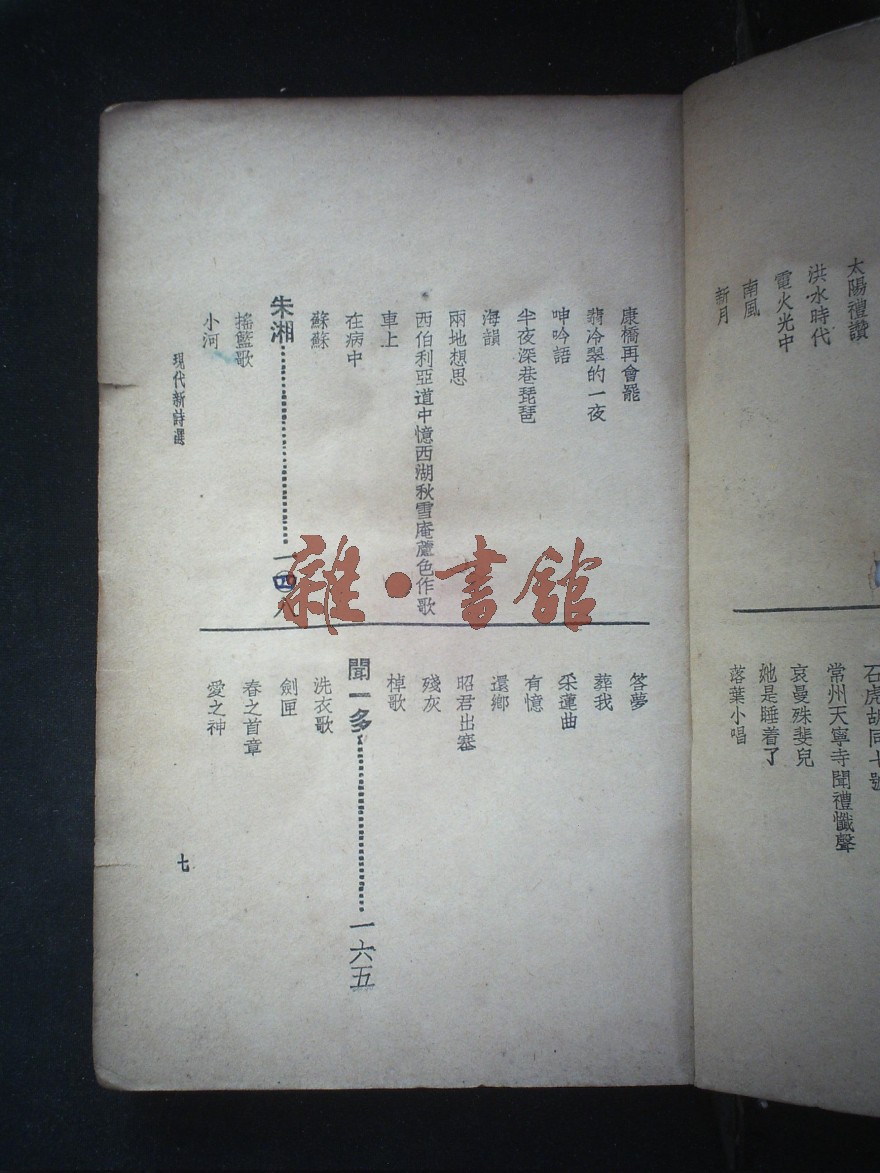 太陽禮讚
洪水時代
電火光中
南風
新月
常州天寧寺聞禮懺聲
哀曼殊斐兒
她是睡着了
落葉小唱
康橋再會罷
翡冷翠的一夜
呻吟語
半夜深巷琵琶
海韻
兩地想思
西伯利亞道中憶西湖秋雪庵蘆色作歌
車上
在病中
蘇蘇
朱湘 一四八
搖籃歌
小河
答夢
葬我
采蓮曲
有憶
還鄉
昭君出塞
殘灰
棹歌
聞一多 一六五
洗衣歌
劍匣
春之首章
愛之神
現代新詩選
七
雜·書館